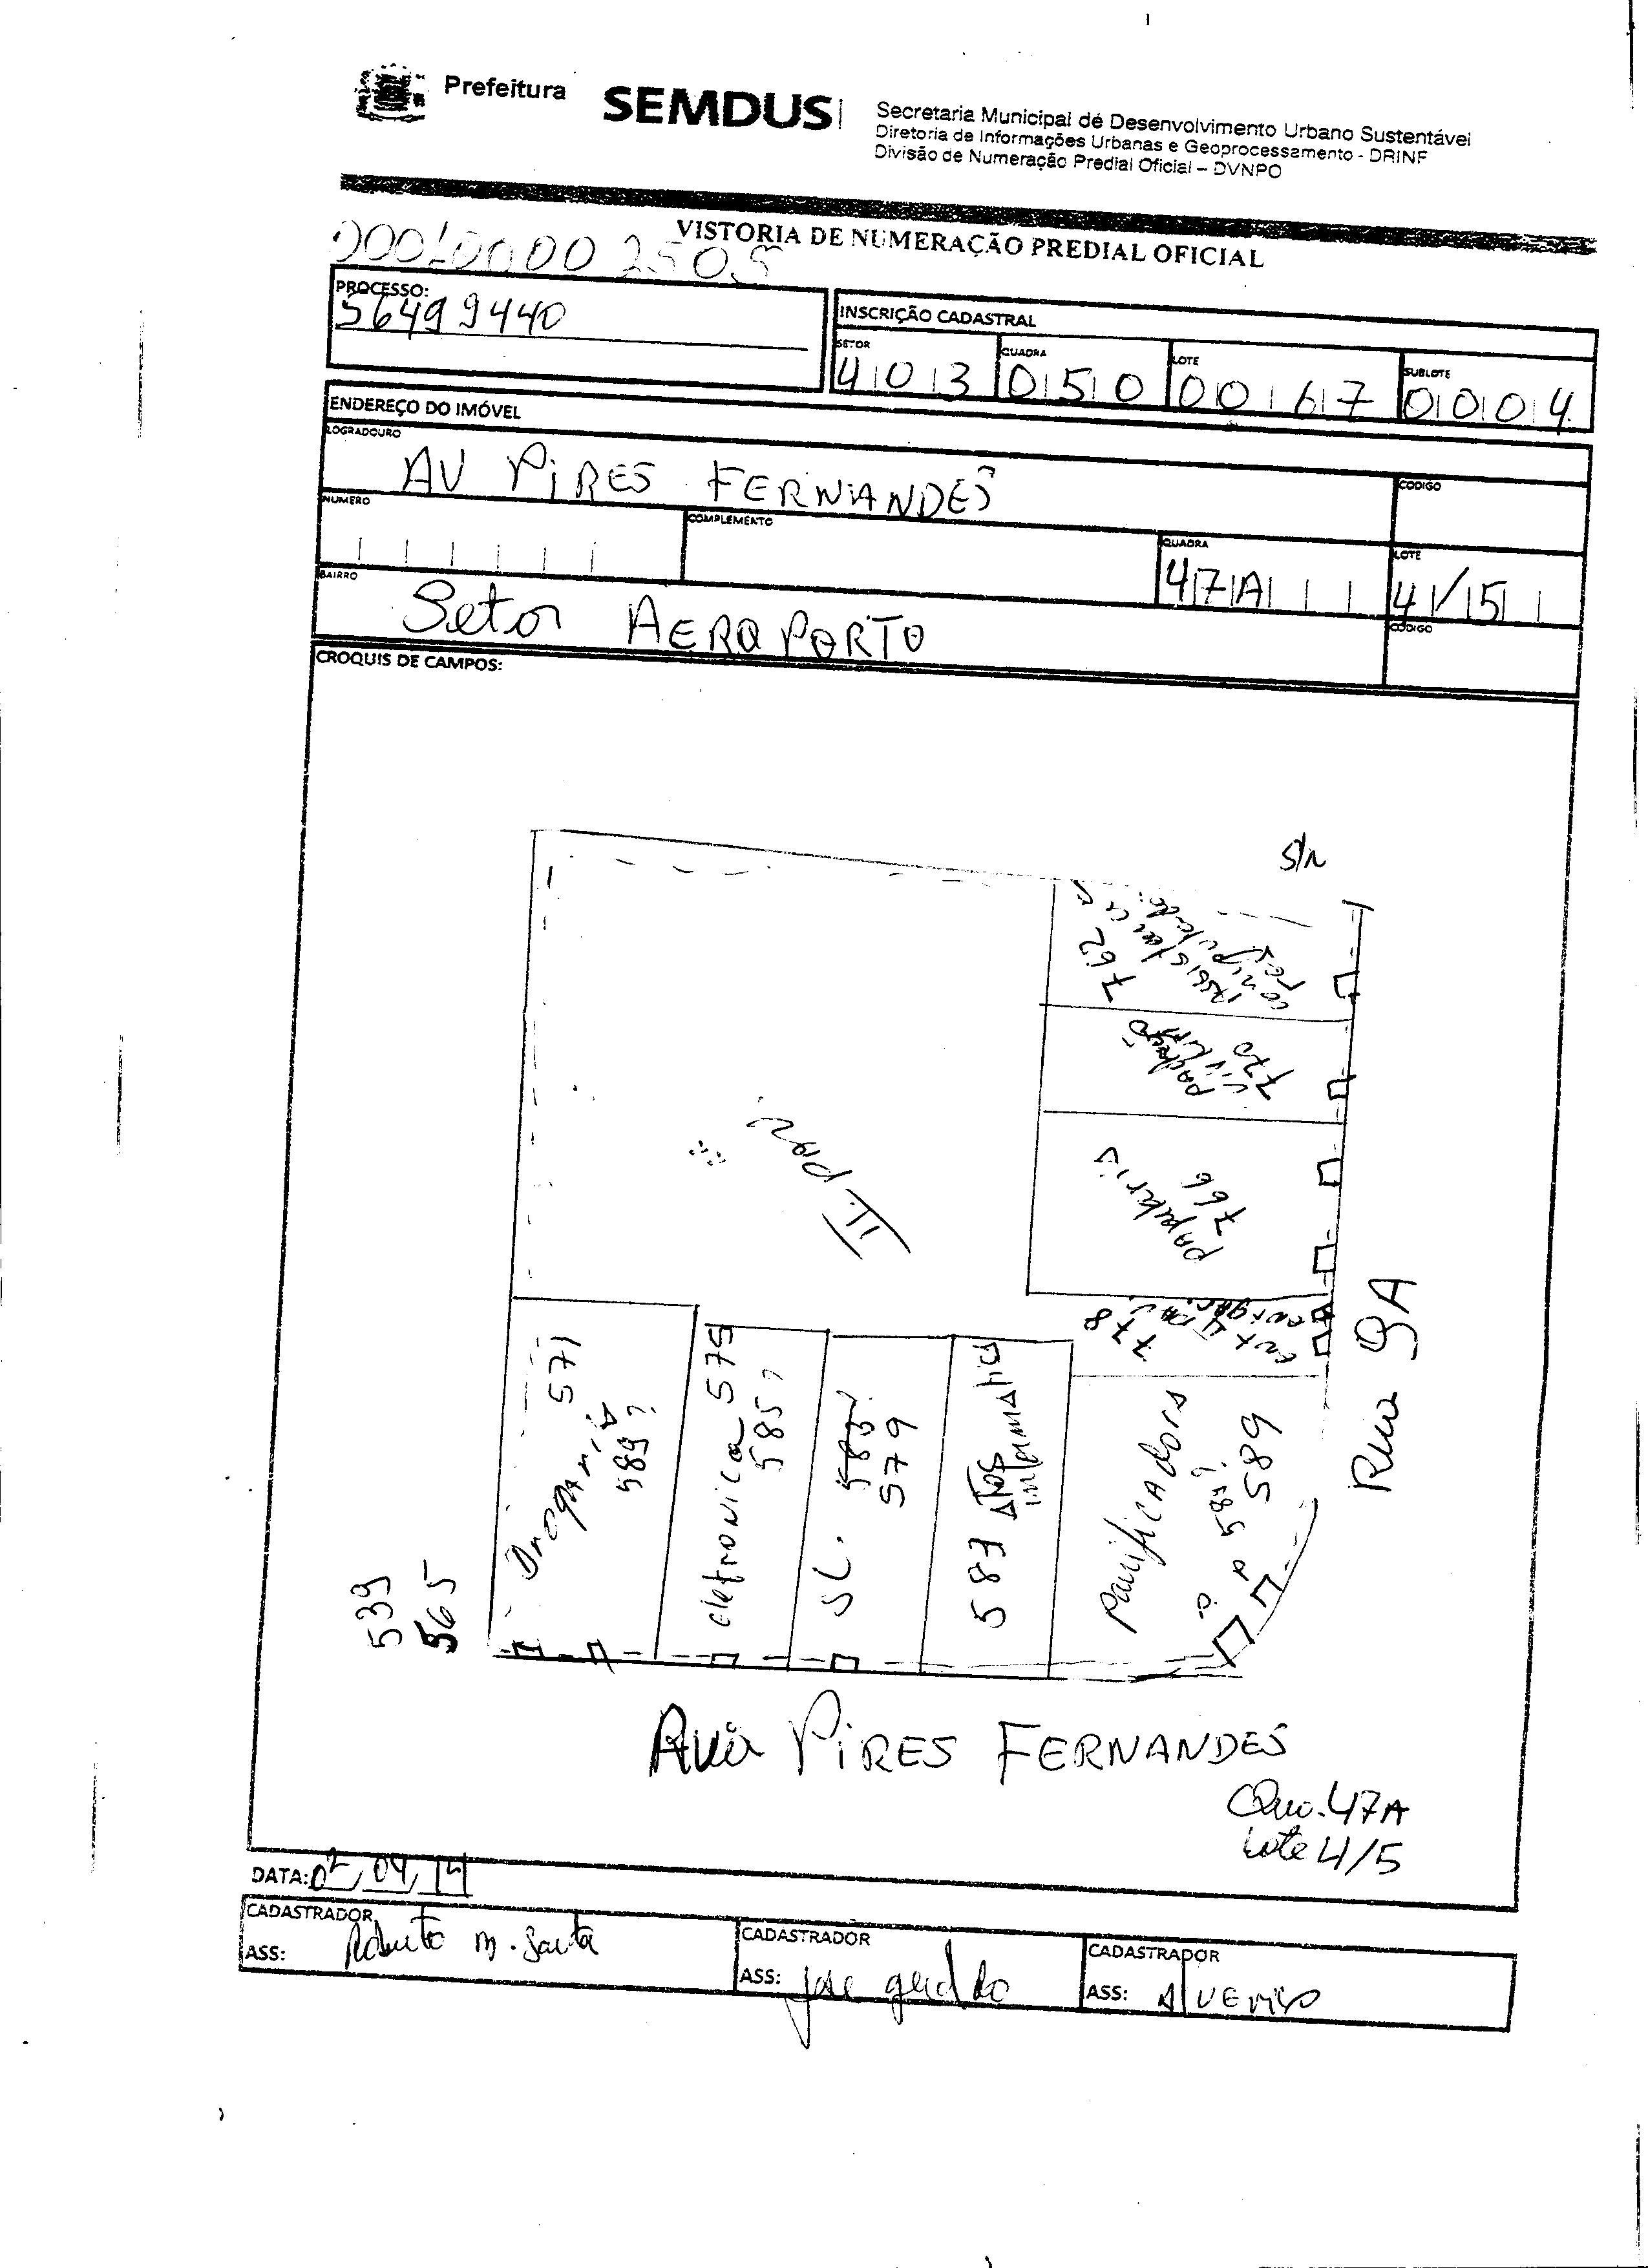 Prefeitura
SEMDUS
Secretaria Municipal de Desenvolvimento Urbano Sustentável
Diretoria de Informações Urbanas e Geoprocessamento - DRINF
Divisão de Numeração Predial Oficial – DVNPO
VISTORIA DE NUMERAÇÃO PREDIAL OFICIAL
PROCESSO:
56499440
INSCRIÇÃO CADASTRAL
SETOR
403
QUADRA
050
LOTE
0067
SUBLOTE
0004
ENDEREÇO DO IMÓVEL
LOGRADOURO
AV PIRES FERNANDES
CODIGO
NUMERO
COMPLEMENTO
QUADRA
47A
LOTE
4/5
BAIRRO
Setor AEROPORTO
CODIGO
CROQUIS DE CAMPOS:
S/N
762
770
papelaria
766
II PAV
778
Rua 9A
Drogaria 571
589?
eletronica 575
585?
SL. 583
579
583 ATOS
informatica
Panificadora
589
539
565
PIRES FERNANDES
Qua. 47A
Lote 4/5
DATA: 02/04/14
CADASTRADOR
ASS: Roberto M.
CADASTRADOR
ASS: Jose geraldo
CADASTRADOR
ASS: